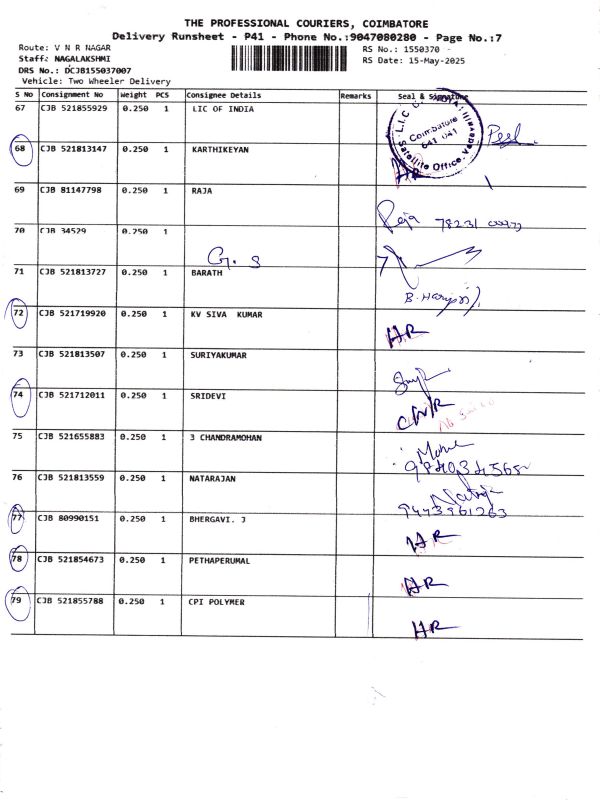 THE PROFESSIONAL COURIERS, COIMBATORE
Delivery Runsheet - P41 - Phone No.:9047080280 - Page No.:7
Route: V N R NAGAR RS No.: 1550370
Staff: NAGALAKSHMI RS Date: 15-May-2025
DRS No.: DCJB155037007
Vehicle: Two Wheeler Delivery
S No Consignment No Weight PCS Consignee Details Remarks Seal & Signature
67 CJB 521855929 0.250 1 LIC OF INDIA
Coimbatore
641 041
Satellite Office
68 CJB 521813147 0.250 1 KARTHIKEYAN
69 CJB 81147798 0.250 1 RAJA
Raja 78231
70 CJB 34529 0.250 1
G. S
71 CJB 521813727 0.250 1 BARATH
72 CJB 521719920 0.250 1 KV SIVA KUMAR
HR
73 CJB 521813507 0.250 1 SURIYAKUMAR
74 CJB 521712011 0.250 1 SRIDEVI
75 CJB 521655883 0.250 1 J CHANDRAMOHAN
76 CJB 521813559 0.250 1 NATARAJAN
9443961263
77 CJB 80990151 0.250 1 BHERGAVI. J
HR
78 CJB 521854673 0.250 1 PETHAPERUMAL
HR
79 CJB 521855788 0.250 1 CPI POLYMER
HR